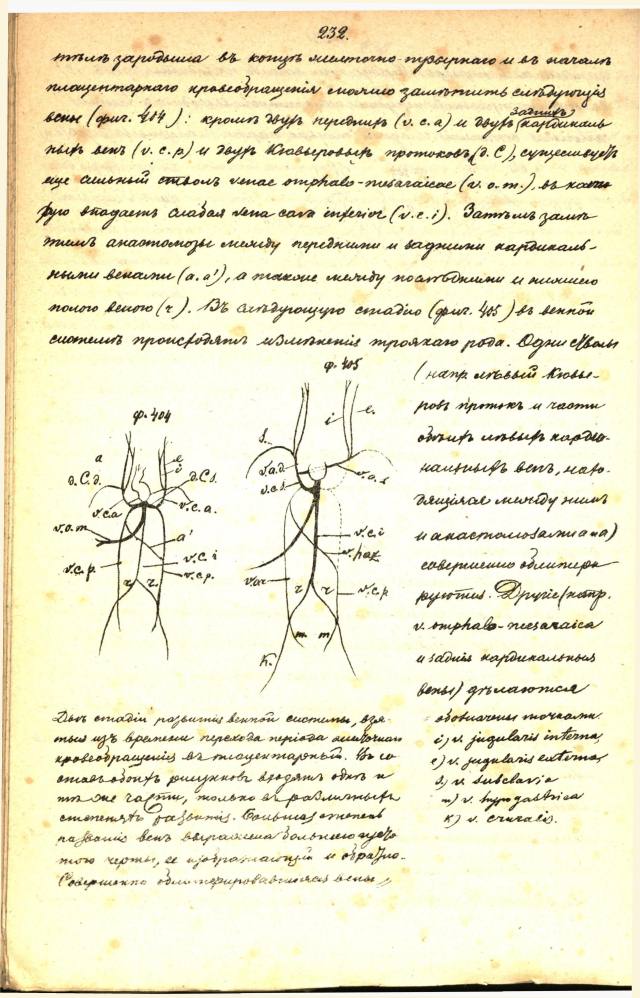 232.
тѣлѣ зародыша въ концѣ желточно-пузырнаго и въ началѣ
плацентарнаго кровеобращенія можно замѣтить слѣдующія
вены (фиг. 404): кромѣ двухъ переднихъ (v.c.a) и двухъ заднихъ кардиналь
ныхъ венъ (v.c.p) и двухъ Кювьеровыхъ протоковъ (d.C), существуетъ
еще сильный стволъ venae omphalo-mesaraicae (v.o.m.), въ кото
рую впадаетъ слабая vena cava inferior (v.c.i). Затѣмъ замѣ
тимъ анастомозы между передними и задними кардиналь-
ными венами (a.a'), а также между послѣдними и нижнею
полою веною (r). Въ слѣдующую стадію (фиг. 405) въ венной
системѣ происходятъ измѣненія троякаго рода. Одни стволы
ф. 405
(напр. лѣвый Кювье-
ровъ протокъ и части
обѣихъ лѣвыхъ карди-
нальныхъ венъ, нахо-
дящіяся между нимъ
и анастомозами a)
совершенно облитери
руются. Другіе (напр.
v. omphalo-mesaraica
и заднія кардинальныя
вены) дѣлаются
ф. 404
a
e
i
d.C.d.
d.C.s.
v.c.a
v.c.a.
v.o.m
a'
v.c.p.
v.c.i
v.c.p.
r
r
i
e.
s.
v.a.d.
v.a.s
v.c.s.
v.c.i
v.az
r
r
v.c.p
m
m
K.
Двѣ стадіи развитія венной системы, взя-
тыя изъ времени перехода періода желточнаго
кровеобращенія въ плацентарный. Въ со
ставъ обоихъ рисунковъ входятъ однѣ и
тѣ же части, только въ различныхъ
степеняхъ развитія. Большая степень
развитія венъ выражена большею
тою черты, ее изображающей и обратно.
Совершенно облитерировавшіяся вены
обозначены точками.
i) v. jugularis interna,
e) v. jugularis externa,
s) v. subclavia
m) v. hypogastrica
K) v. cruralis.